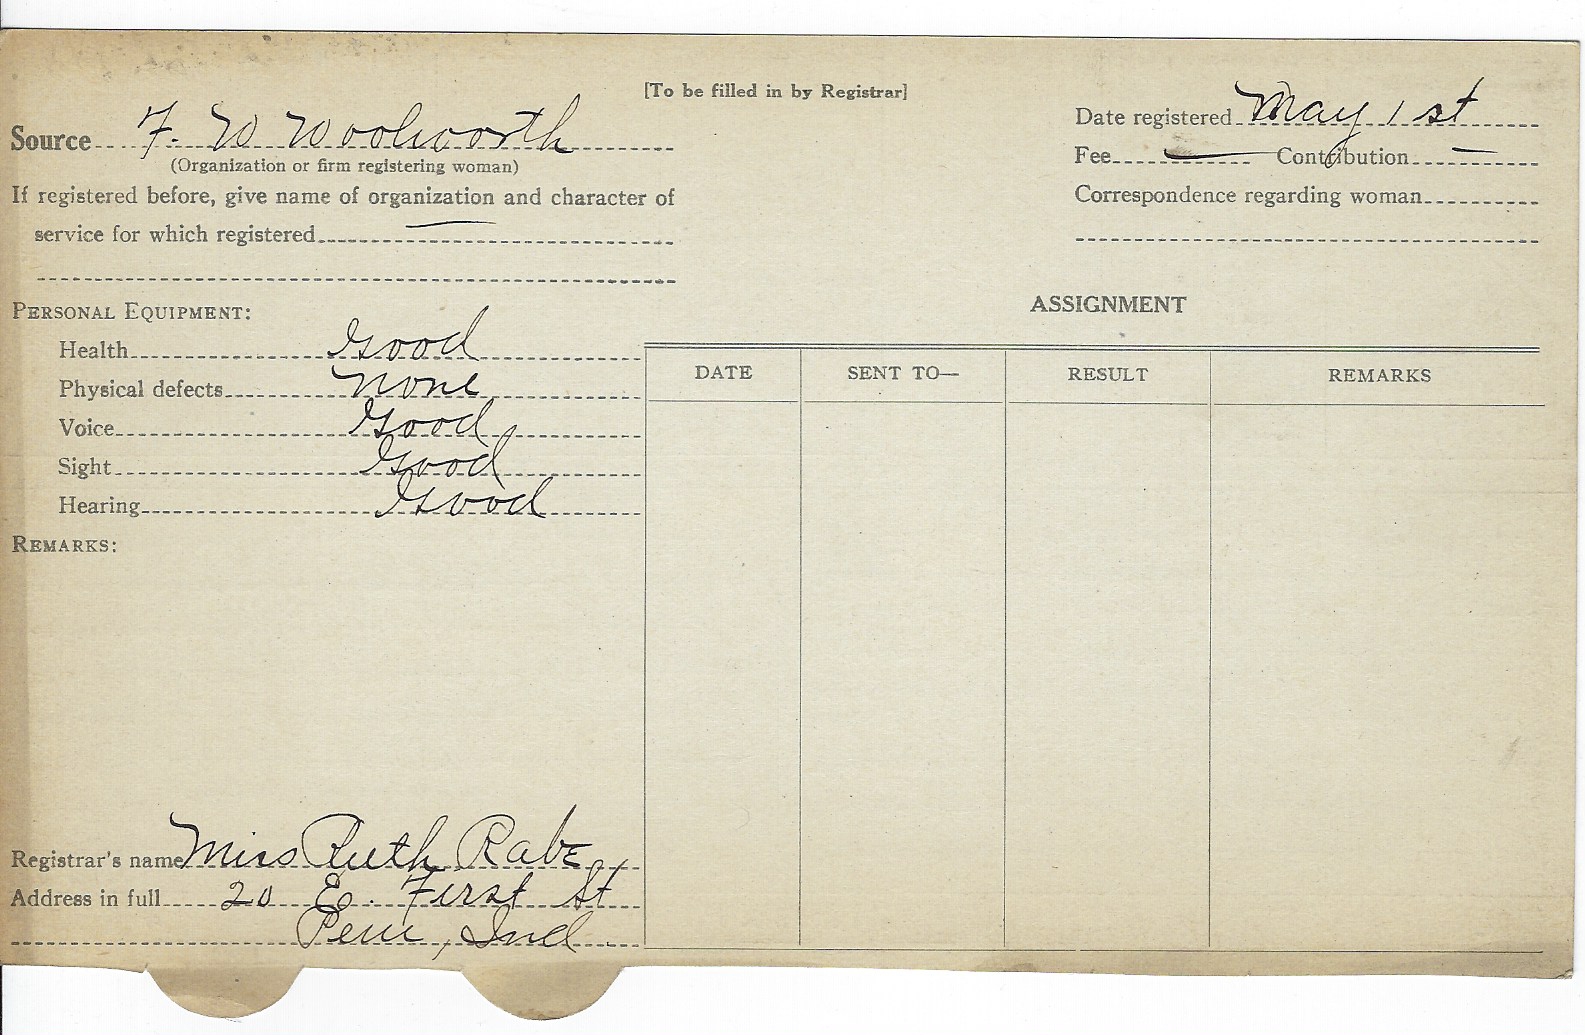 [To be filled in by Registrar]
Source F. W Woolworth
(Organization or firm registering woman)
If registered before, give name of organization and character of
service for which registered —
Date registered May 1st
Fee — Contribution —
Correspondence regarding woman
PERSONAL EQUIPMENT:
Health Good
Physical defects none
Voice Good
Sight Good
Hearing Good
REMARKS:
Registrar's name Miss Ruth Rabe
Address in full 20 E. First St
Peru, Ind
ASSIGNMENT
DATE SENT TO— RESULT REMARKS